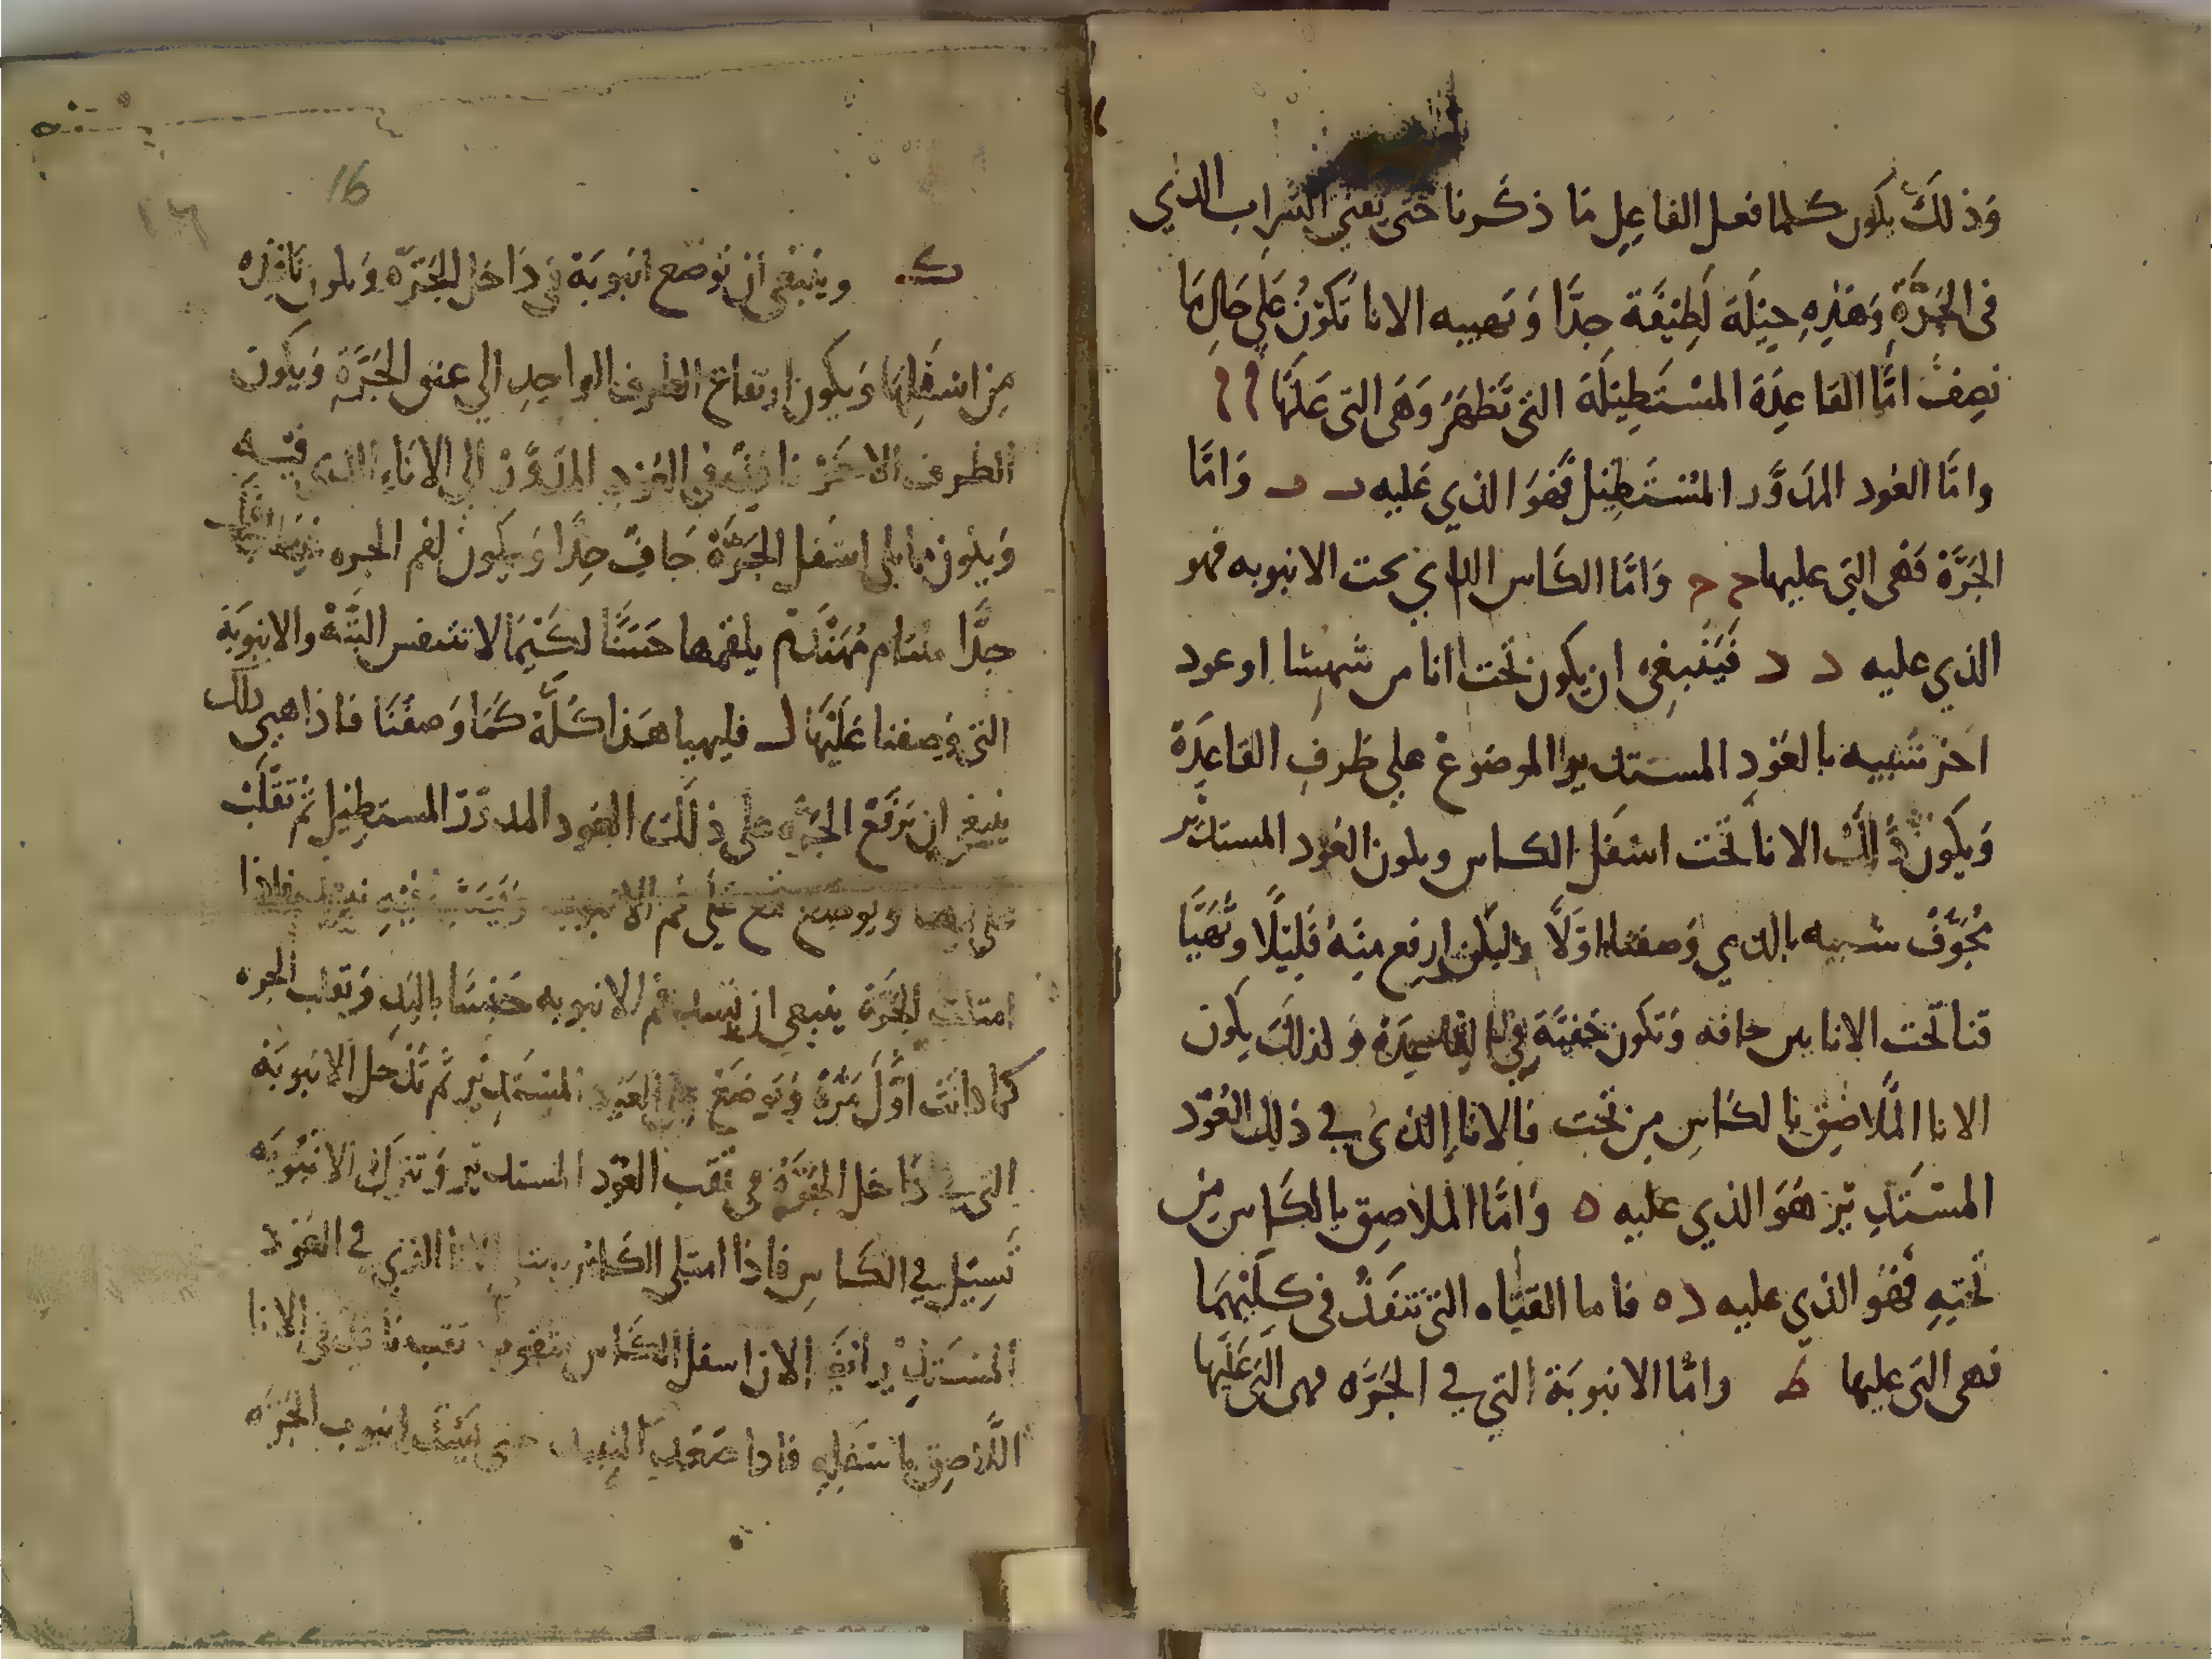 وَذلكَ يكون كلما فعل الفاعِلِ مَا ذكرنا حتى يفنى الشراب الذي
في الجَرَّةِ وَهَذِهِ حِيْلَة لَطِيْفَة جِدًّا وَتهييه الانا تَكوْنُ عَلى حَالِ مَا
نصِفُ امَّا القاعِدَة المسْتَطِيْلَة التي تَظهَرُ وَهَى التى عَليْهَا ا ا
وامَّا العُود المدَوَّر المسْتَطِيْل فهوَ الذي عَليه ب ب وَامَّا
الجَرَّة فَهْى التِي عليها ح ح وَامَّا الكَاس الذي تحت الانبوبه فهو
الذي عليه د د فيَنْبغى ان يكون تحت انا من شهبشا او عود
اخر شبيه بالعَوْدِ المستدير الموضوع على طرفِ القاعِدَة
وَيكون ذلك الانا تحت اسْفل الكاس ويكون العُود المستدير
مجُوَّفْ شبيه بالذي وَصفنا اوَّلاً وليكن ارفع منهُ قَلِيْلًا وتُهَيَّا
قنا تحت الانا من حافه وَتكون خفيَّة في القاعِدَة وَلذلكَ يكون
الانا المُلاصِق بالكَاسِ مِن تحت فالانا الذى في ذلك العُوْد
المسْتَدِيْر هَوَ الذي عليه ه وَامَّا الملاصِق بالكَاس مِن
تحْتِهِ فهُو الذي عليه ده فاما القنَاه التى تنفَذُ فى كِلَيْهِمَا
فهى التى عليها ط وامَّا الانبوبَة التي في الجَرَّه فهى التى عَليْهَا
16
ك وينبغى أن توضع انبوبَة في دَاخل الجَرَّه وَيكون نافِذه
مِن اسْفَلِهَا وَيكون ارتفاع الطرف الواحِدِ الي عنق الجَرَّةِ وَيكون
الطرف الاخَرْ نافذ في العُوْدِ المدَوَّرْ الي الانَاءِ الذي فيه
وَيكون مما يلى اسْفل الجَرَّةْ جَافّ جِدًّا وَيكون لفم الجره
جدًّا مُهَنْدَم يلقمها حَسَنًا لكَيْمَا لا تتنفس البَتَّة والانبوبَة
التى وَصِفنا عَلَيْهَا ل فليهيا هَذا كُلَّهْ كَمَا وَصفْنَا فاذا هيى ذلك
ينبغى ان تَرْفَعْ الجَرَّه على ذلك العُود المدوّرْ المستطِيْل ثُم تقلَبْ
ويوضع قمع علَى فم الانبوبه فاذا
امتلت الجَرَّة ينبغى ان يسد فم الانبوبه حَسَنَا باليَدِ وَتقلب الجره
كما كانت اوَّلَ مَرَّة وَتوضَعْ على العَود المسْتَدِيْر ثُم تدْخل الانبوبَة
التي في دَاخل الجَرَّة في ثقب العُوْد المستدير وَتترك الانبُوبَه
تَسِيْل في الكَاسِ فاذا امتلى الكَاس الانا الذي في العَوْد
المسْتَدِيْر ايضًا لان اسفل الكَاس مثقوب ثقب نافِذ فى الانا
اللاَّصِق باسْفَلِهِ فاذا صَعَد النبيذ حتى انبوب الجَرَّه